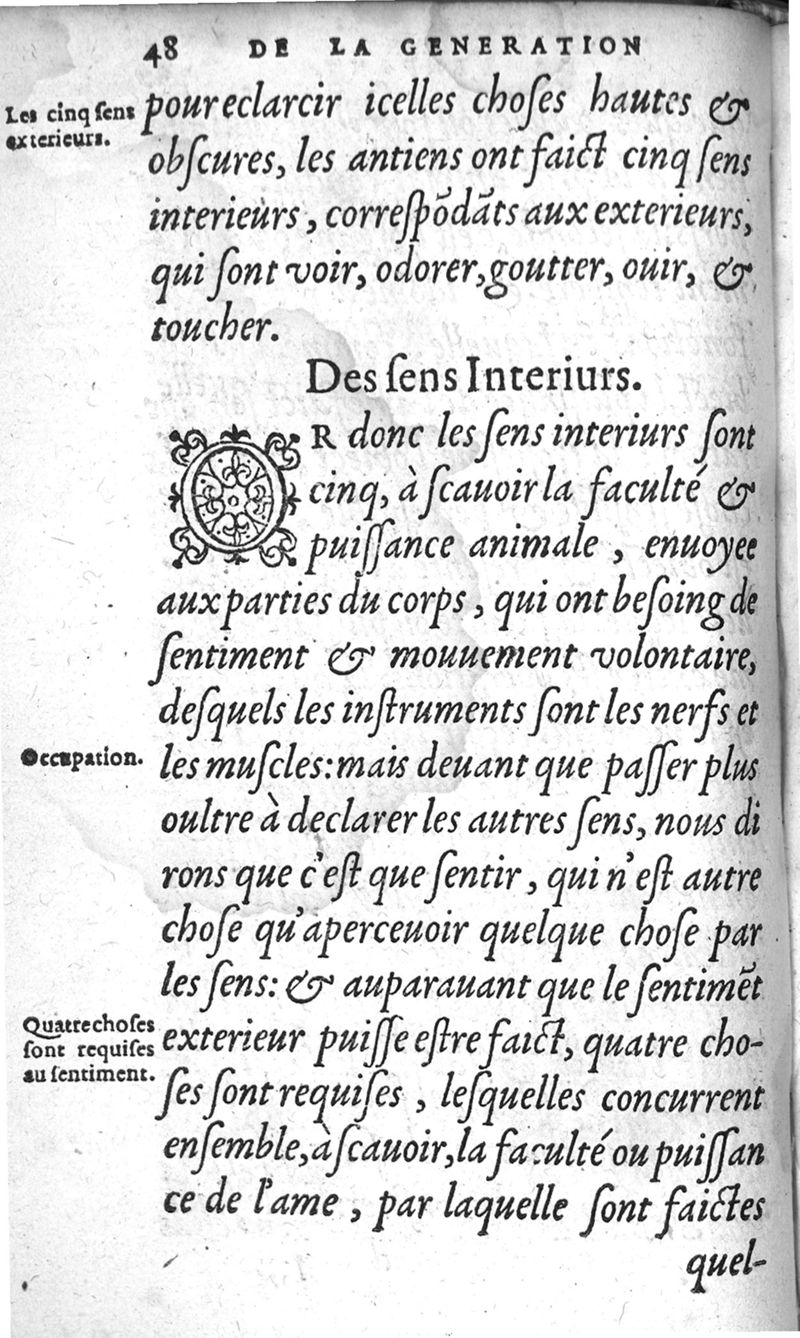 48 DE LA GENERATION
Les cinq ſens
exterieurs.
pour eclarcir icelles choſes hautes &
obſcures, les antiens ont faict cinq ſens
interieurs, correſpōdāts aux exterieurs,
qui ſont voir, odorer, goutter, ouir, &
toucher.
Des ſens Interiurs.
OR donc les ſens interiurs ſont
cinq, à ſcauoir la faculté &
puiſſance animale, enuoyee
aux parties du corps, qui ont beſoing de
ſentiment & mouuement volontaire,
deſquels les inſtruments ſont les nerfs et
Occupation.
les muſcles: mais deuant que paſſer plus
oultre à declarer les autres ſens, nous di
rons que c'eſt que ſentir, qui n'eſt autre
choſe qu'aperceuoir quelque choſe par
les ſens: & auparauant que le ſentimēt
Quatre choſes
ſont requiſes
au ſentiment.
exterieur puiſſe eſtre faict, quatre cho-
ſes ſont requiſes, leſquelles concurrent
enſemble, à ſcauoir, la faculté ou puiſſan
ce de l'ame, par laquelle ſont faictes
quel-